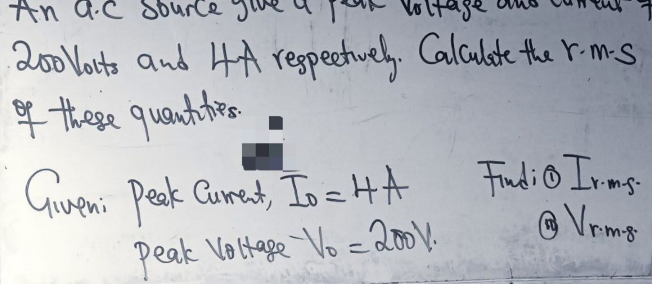 An a.c Source give a peak Voltage and current of
200Volts and 4A respectively. Calculate the r.m.s
of these quantities.
Given: Peak Current, I₀ = 4A Find: (i) Ir.m.s.
Peak Voltage V₀ = 200V. (ii) Vr.m.s.